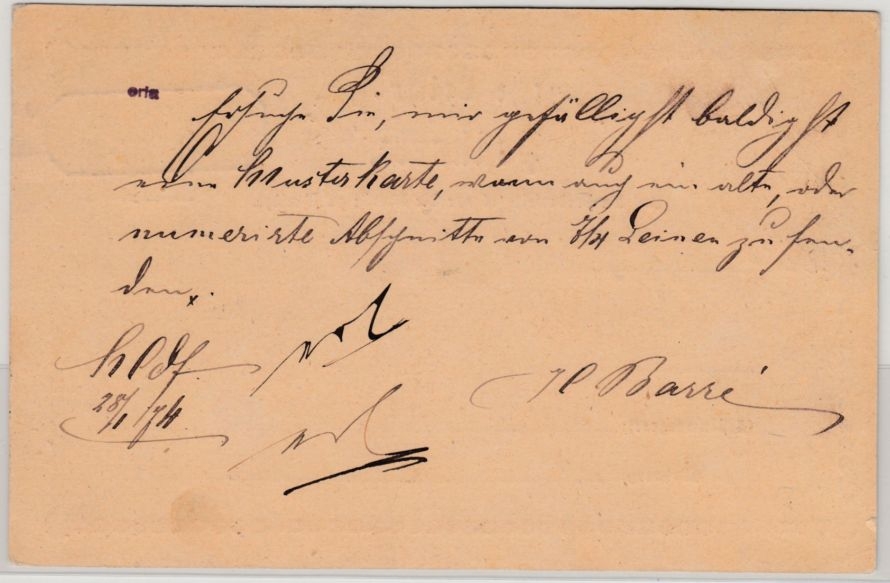 erla
Ersuche Sie, mir gefälligst baldigst
eine Musterkarte, wenn auch ein alte, oder
numerirte Abschnitte von 7/4 Leinen zu sen-
den.
28/1 74
H Barré